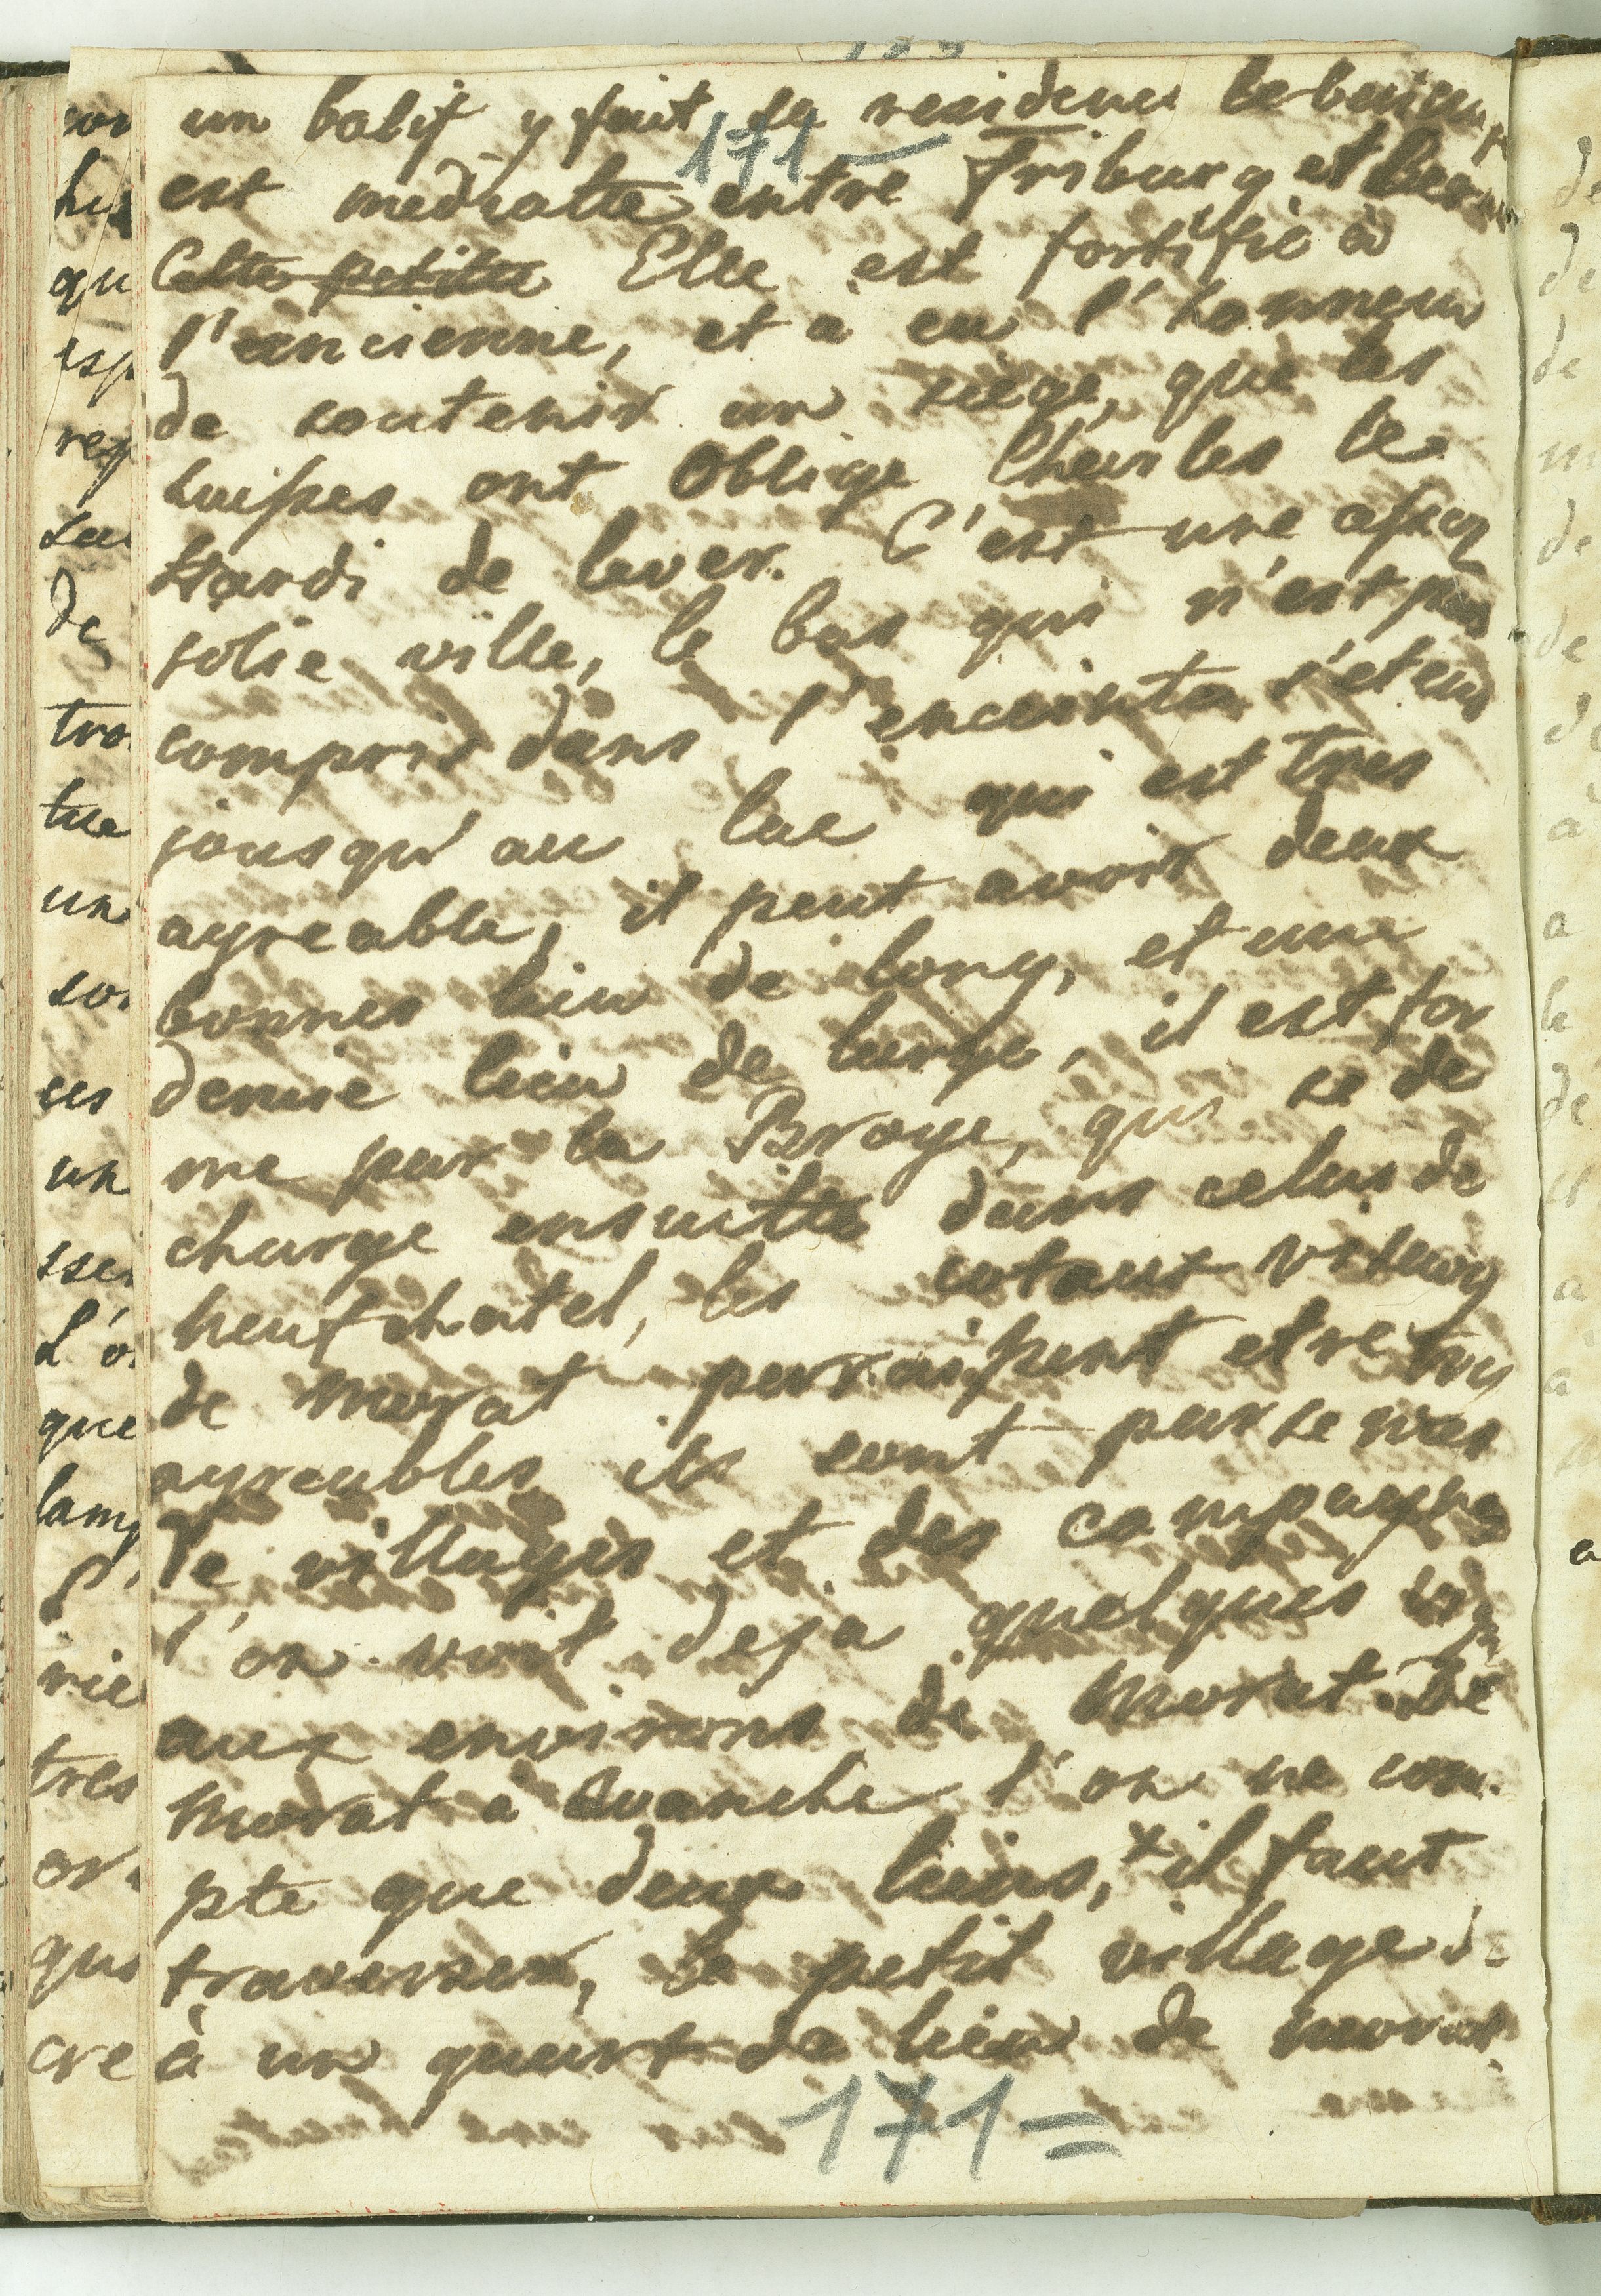 un balif y fait sa residence le
171 —
est mediatte entre Friburg et
Cette petitte Elle est fortifié à
l'ancienne, et a eu l'honneur
de soutenir un siege, que les
suisses ont obligé Charles le
Hardi de lever. C'est une assez
jolie ville, le bas qui n'est pas
compris dans l'enceinte s'etend
jousqu'au lac qui est tres
agreable, il peut avoir deux
bonnes lieu de long, et une
demie lieu de large, il est for
me par la Broye, qui se de
charge ensuitte dans celui de
neufchatel, les cotaux
de Morat parraissent etre tres
agreables ils sont parsemes
de villages et des campagnes
l'on voit deja quelques
aux environs de Morat. De
Morat a Avanche l'on ne com-
pte que deux lieus, x il faut
traverser, le petit village
à un quart de lieu de Morat
171 =